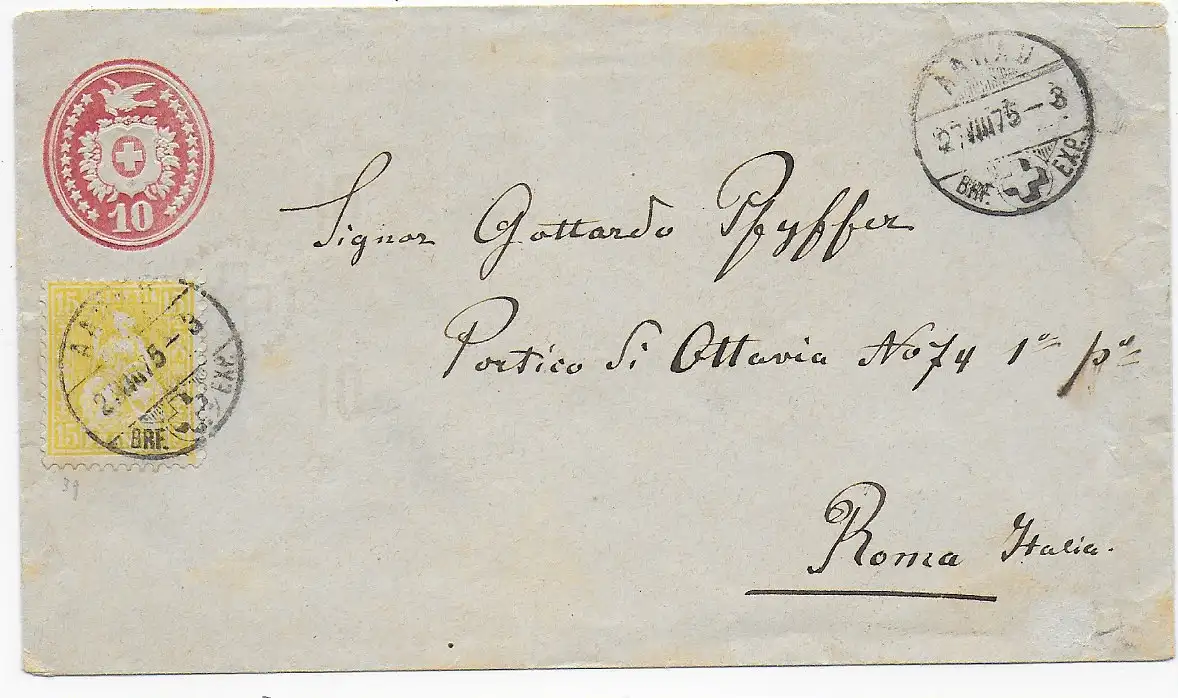 10
AARAU
27 VIII 75 – 3
BRF. EXP.
Signor Gottardo Pfyffer
Portico di Ottavia No 74 1o po
Roma Italia.
15 15
AARAU
27 VIII 75 – 3
BRF. EXP.
15
39